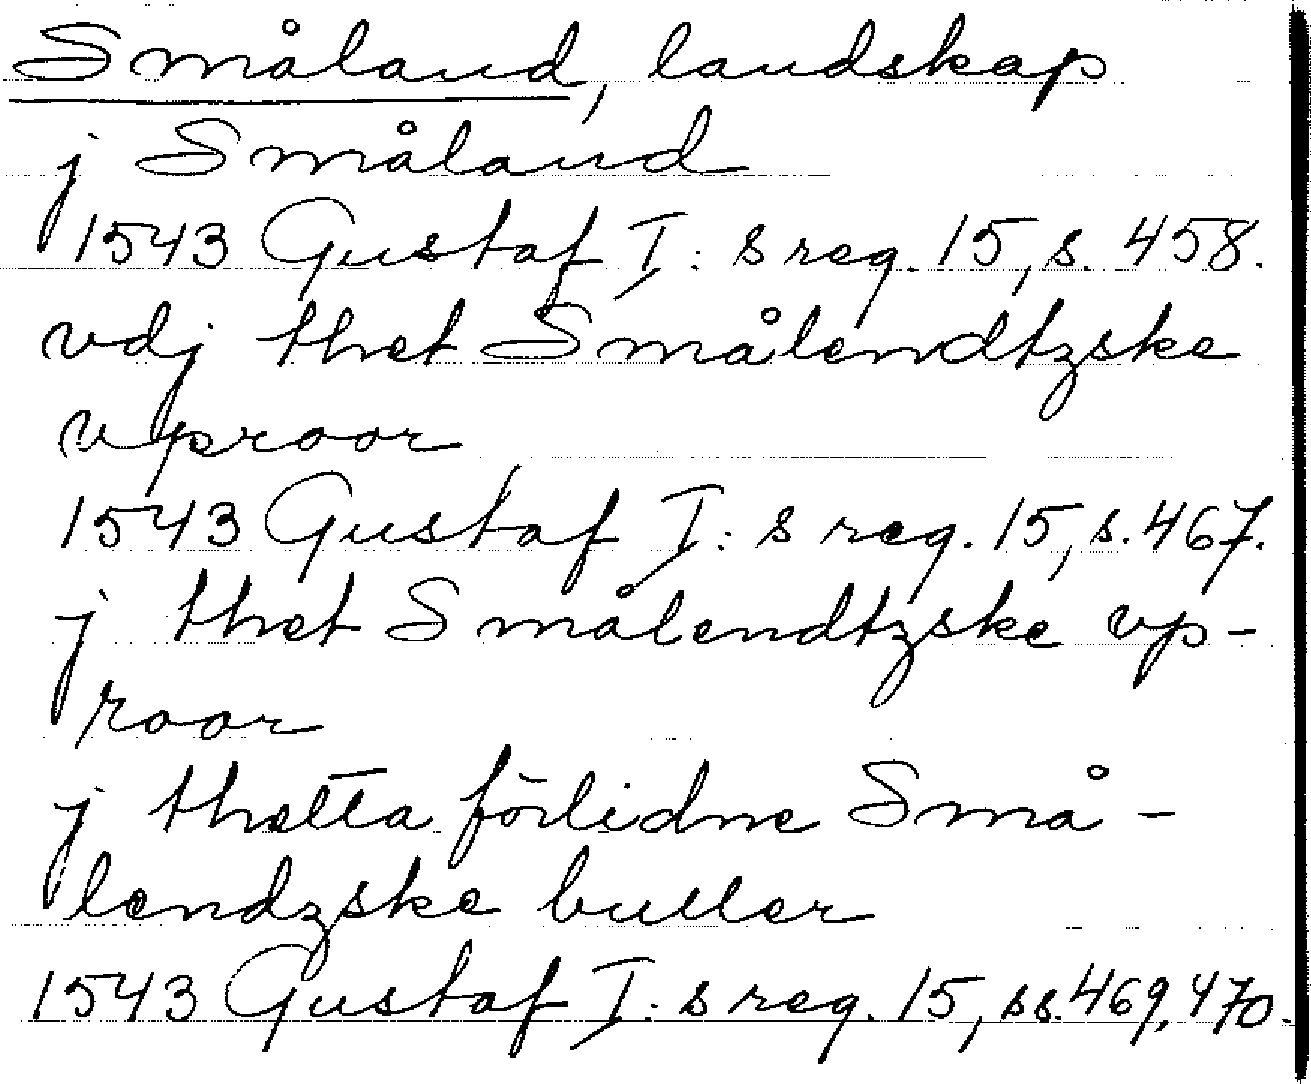 Småland, landskap
j Småland
1543 Gustaf I: s reg. 15, s. 458.
vdj thet Smålendtzske
vproor
1543 Gustaf I: s reg. 15, s. 467.
j thet Smålendtzske vp-
roor
j thetta förlidne Små-
lendzske buller
1543 Gustaf I: s reg. 15, ss. 469, 470.